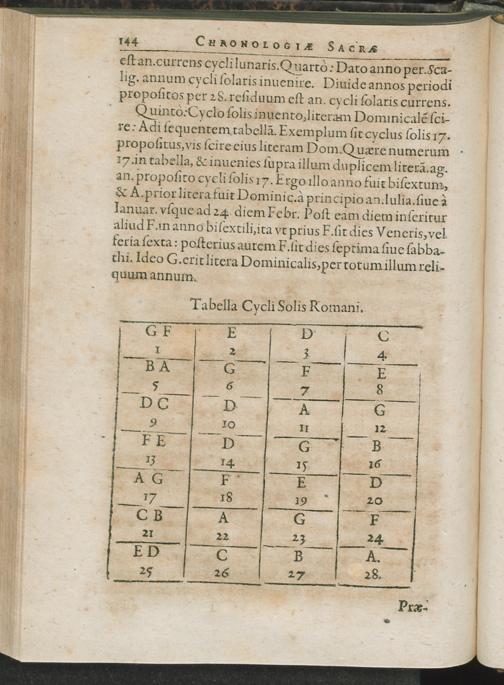 144 CHRONOLOGIÆ SACRÆ
est an. currens cycli lunaris. Quartò: Dato anno per. Sca-
lig. annum cycli solaris inuenire. Diuide annos periodi
propositos per 28. residuum est an. cycli solaris currens.
Quintò: Cyclo solis inuento, literam Dominicalē sci-
re: Adi sequentem tabellā. Exemplum sit cyclus solis 17.
propositus, vis scire eius literam Dom. Quære numerum
17. in tabella, & inuenies supra illum duplicem literā. ag.
an. proposito cycli solis 17. Ergo illo anno fuit bisextum,
& A. prior litera fuit Dominic. à principio an. Iulia. siue à
Ianuar. vsque ad 24 diem Febr. Post eam diem inseritur
aliud F. in anno bisextili, ita vt prius F. sit dies Veneris, vel
feria sexta: posterius autem F. sit dies septima siue sabba-
thi. Ideo G. erit litera Dominicalis, per totum illum reli-
quum annum.
Tabella Cycli Solis Romani.
G F E D C
1 2 3 4
B A G F E
5 6 7 8
D C D A G
9 10 11 12
F E D G B
13 14 15 16
A G F E D
17 18 19 20
C B A G F
21 22 23 24
E D C B A.
25 26 27 28.
Præ-